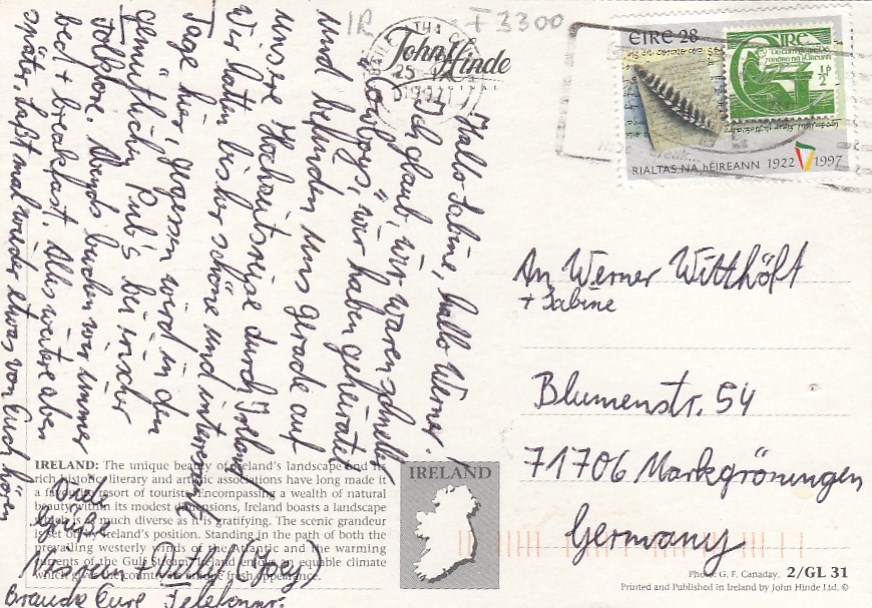 Hallo Sabine, hallo Werner.
Ich glaub, wir waren schneller
Cowboys, wir haben geheiratet
und befinden uns gerade auf
unsere Hochzeitsreise durch Irland
Wir hatten bisher schöne und interessante
Tage hier, gegessen wird in den
gemütlichen Pub's bei irischer
Folklore. Abends buchen wir immer
bed + breakfast. Alles weitere aber
später. Laßt mal wieder etwas von Euch hören
Viele
Grüße
(Joey)
Brauche Eure Telefonnr.
IR F 3300
BAILE ÁTHA CL
25
1997
John Hinde
ORIGINAL
ÉIRE 28
EIRE
½p
RIALTAS NA hÉIREANN 1922 1997
An Werner Witthöft
+ Sabine
Blumenstr. 54
71706 Markgröningen
Germany
IRELAND: The unique beauty of Ireland's landscape and its
rich historic, literary and artistic associations have long made it
a favourite resort of tourists. Encompassing a wealth of natural
beauty within its modest dimensions, Ireland boasts a landscape
which is as much diverse as it is gratifying. The scenic grandeur
is set off by Ireland's position. Standing in the path of both the
prevailing westerly winds of the Atlantic and the warming
currents of the Gulf Stream, Ireland enjoys an equable climate
which gives the country its unique fresh appearance.
IRELAND
Photo: G. F. Canaday. 2/GL 31
Printed and Published in Ireland by John Hinde Ltd. ©